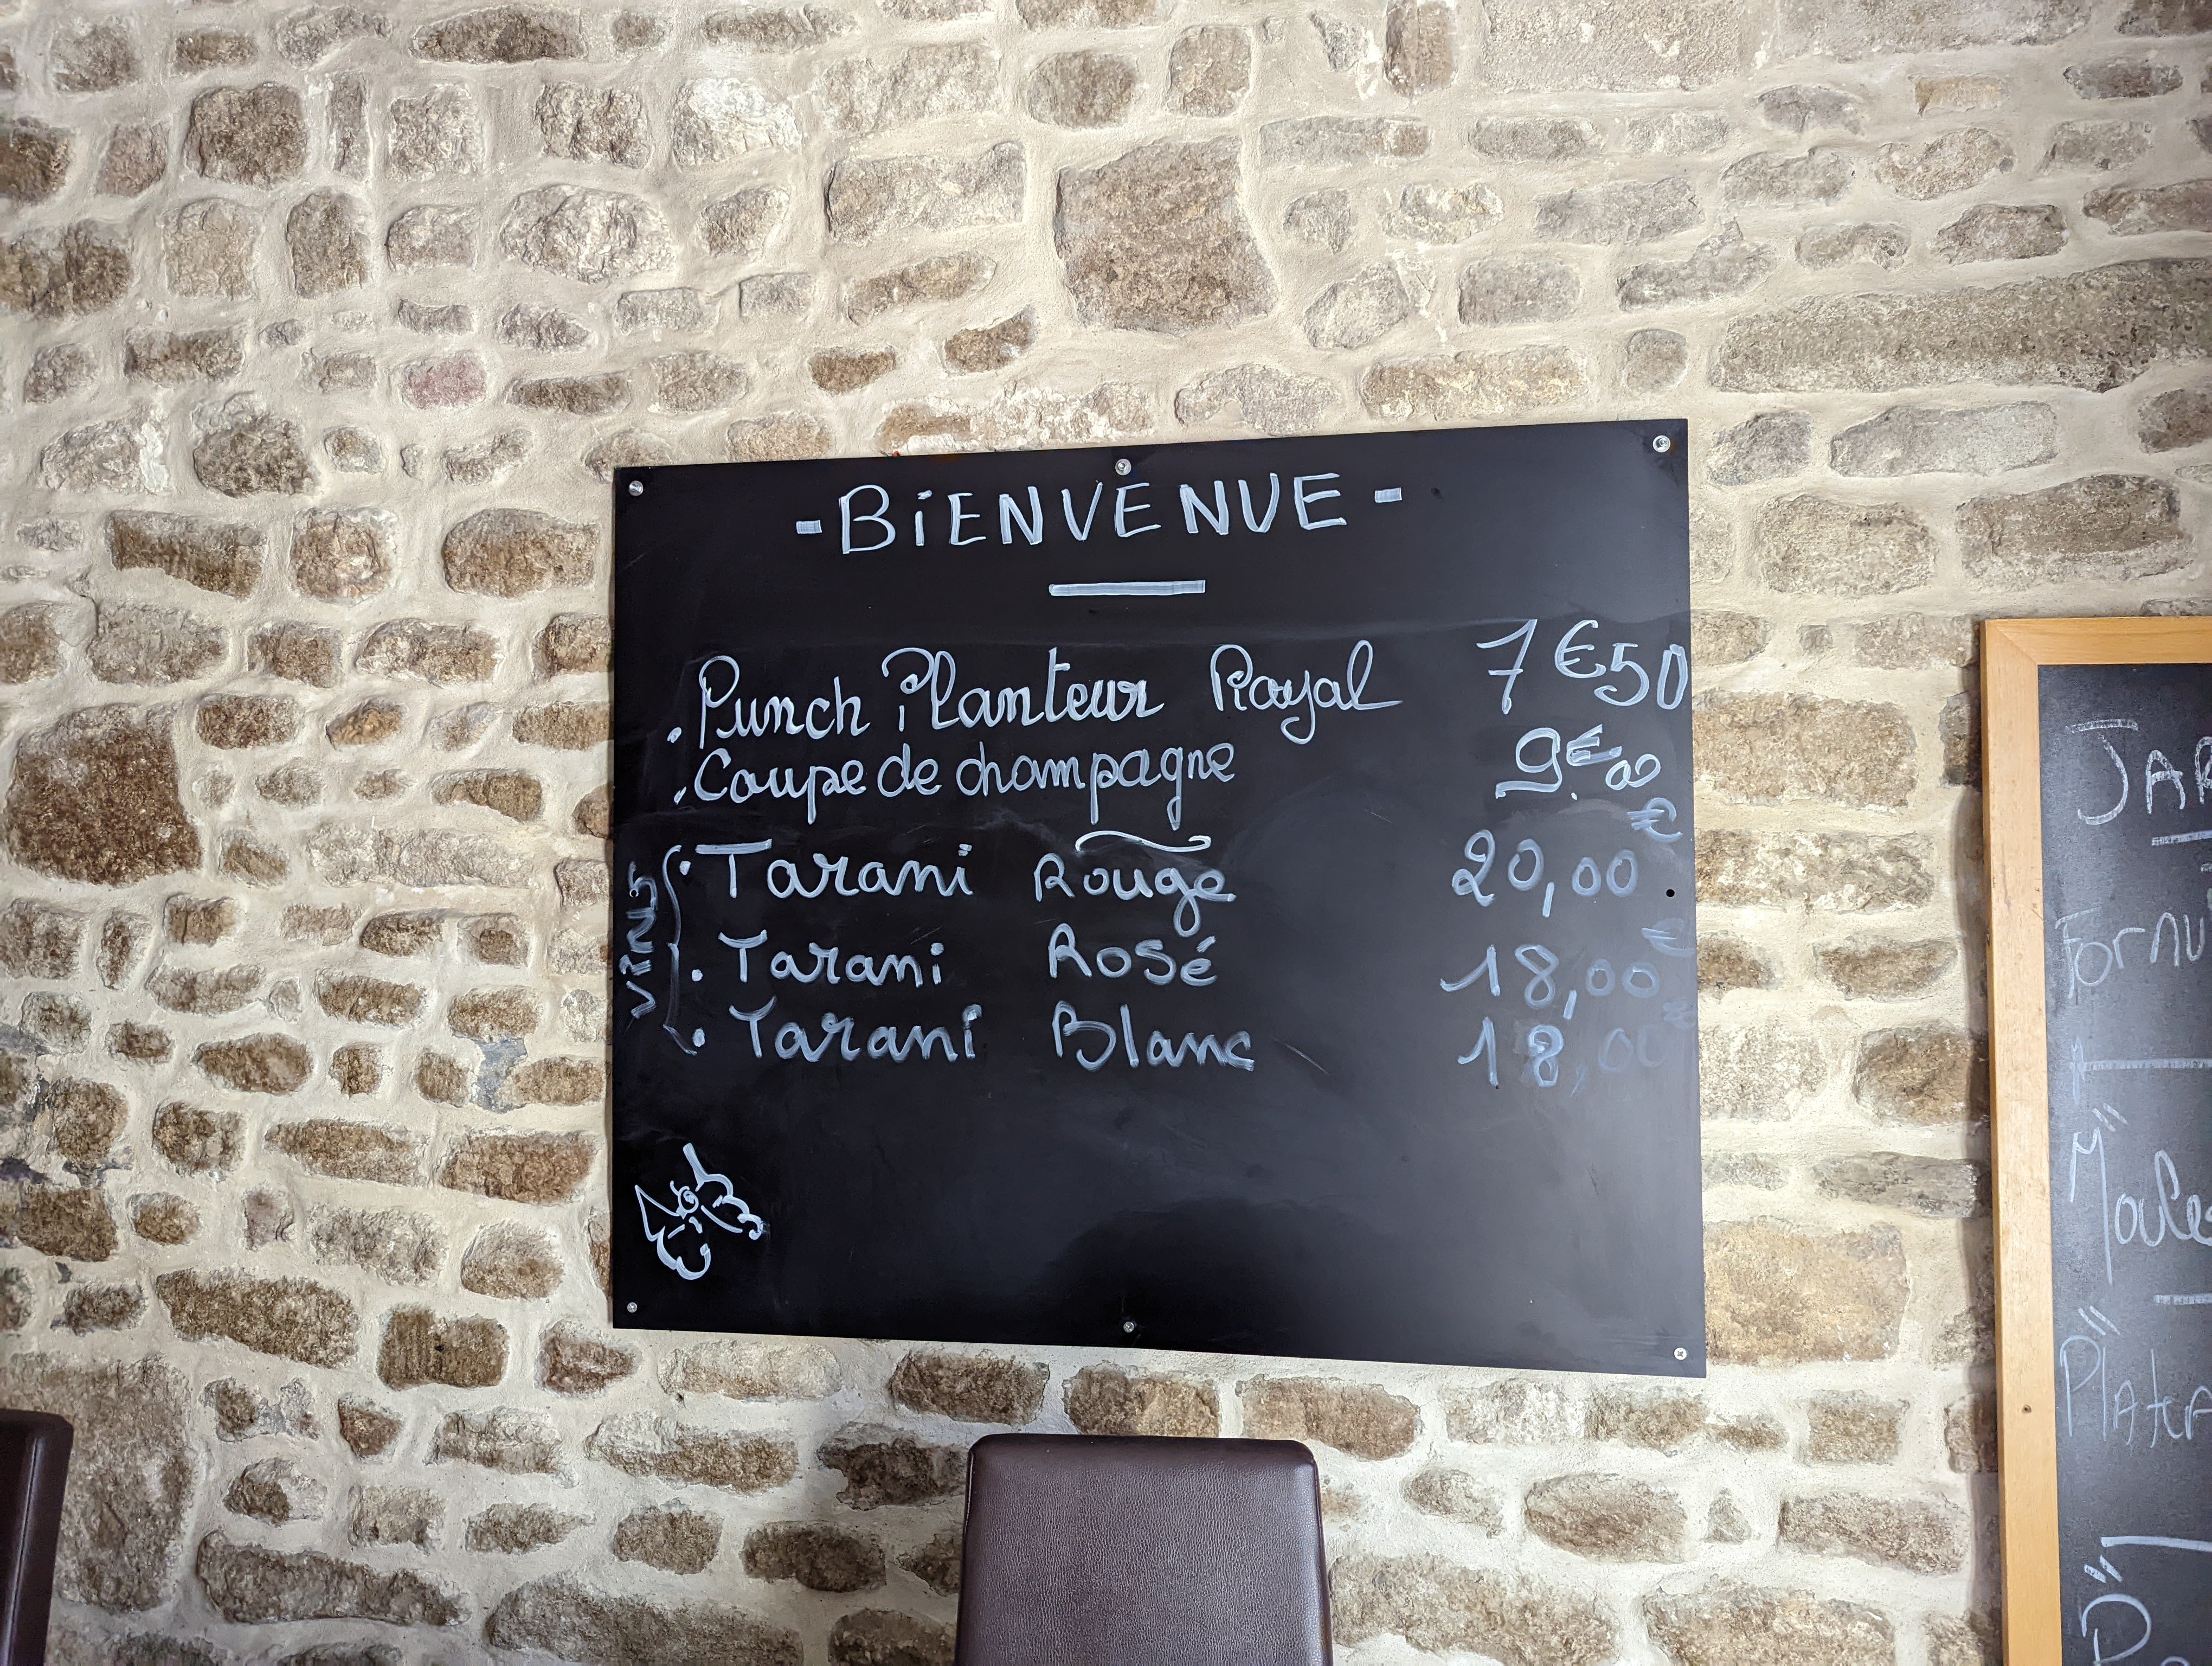 - BiENVENUE -
. Punch Planteur Royal 7€50
. Coupe de champagne 9€00
ViNS
. Tarani Rouge 20,00€
. Tarani Rosé 18,00€
. Tarani Blanc 18,00€
JAR
Formu
Moules
Platea